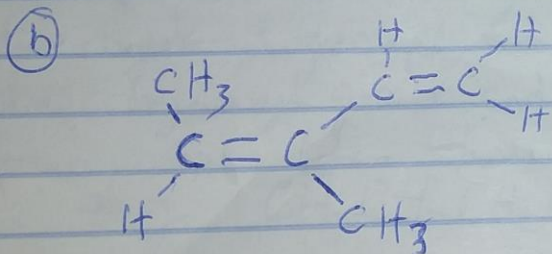 b
H H
CH3 C = C
H
C = C
H CH3